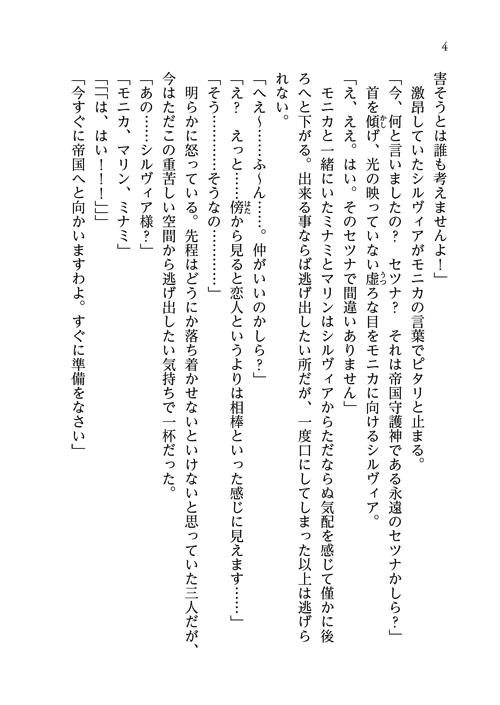 4
害そうとは誰も考えませんよ！」
　激昂していたシルヴィアがモニカの言葉でピタリと止まる。
「今、何と言いましたの？　セツナ？　それは帝国守護神である永遠のセツナかしら？」
　首を傾げ、光の映っていない虚ろな目をモニカに向けるシルヴィア。
「え、ええ。はい。そのセツナで間違いありません」
　モニカと一緒にいたミナミとマリンはシルヴィアからただならぬ気配を感じて僅かに後
ろへと下がる。出来る事ならば逃げ出したい所だが、一度口にしてしまった以上は逃げら
れない。
「へえ～……ふ～ん……。仲がいいのかしら？」
「え？　えっと……傍から見ると恋人というよりは相棒といった感じに見えます……」
「そう…………そうなの…………」
　明らかに怒っている。先程はどうにか落ち着かせないといけないと思っていた三人だが、
今はただこの重苦しい空間から逃げ出したい気持ちで一杯だった。
「あの……シルヴィア様？」
「モニカ、マリン、ミナミ」
「「「は、はい！！！」」」
「今すぐに帝国へと向かいますわよ。すぐに準備をなさい」